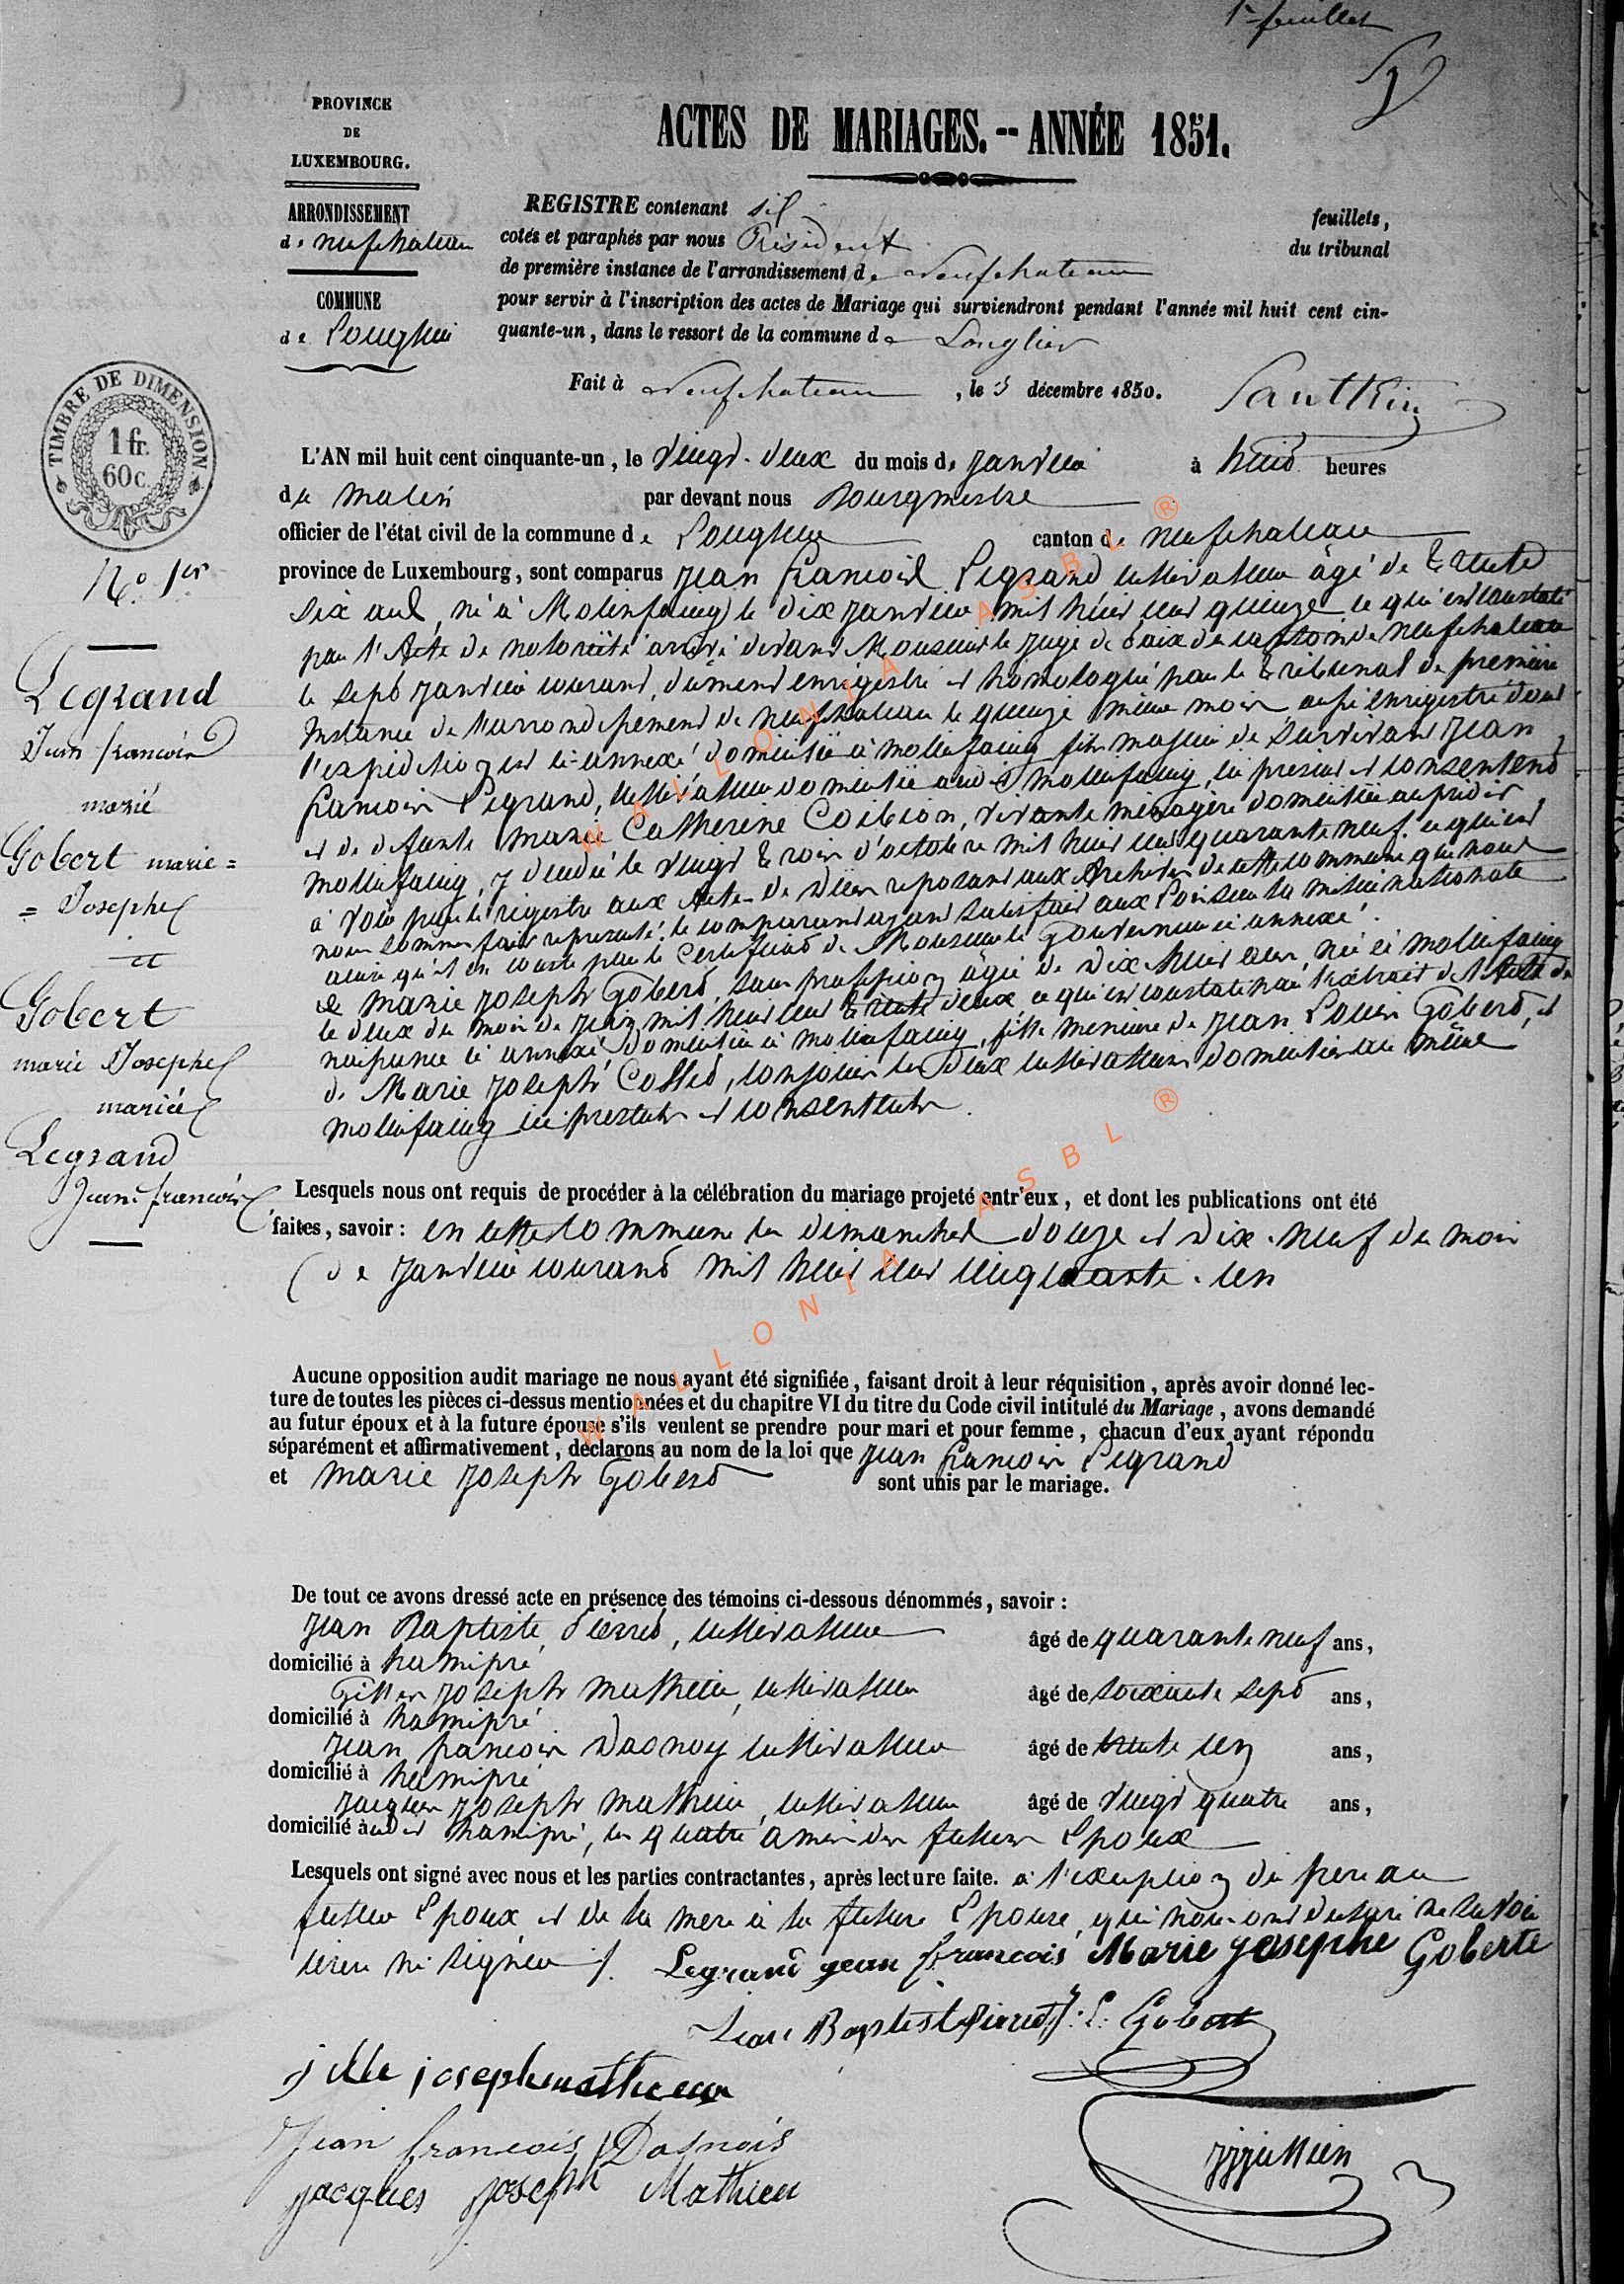 1er feuillet
PROVINCE
DE
LUXEMBOURG.
ACTES DE MARIAGES. -- ANNÉE 1851.
ARRONDISSEMENT
de neufchateau
COMMUNE
de Longlier
REGISTRE contenant six feuillets,
cotés et paraphés par nous Président du tribunal
de première instance de l'arrondissement de Neufchateau
pour servir à l'inscription des actes de Mariage qui surviendront pendant l'année mil huit cent cin-
quante-un, dans le ressort de la commune de Longlier
Fait à Neufchateau, le 3 décembre 1850.
TIMBRE DE DIMENSION
1 fr.
60 c.
N.o 1er
Legrand
Jean francois
marié
Gobert marie =
= Josephe
et
Gobert
marie Josephe
mariée
Legrand
Jean francois
L'AN mil huit cent cinquante-un, le vingt-deux du mois de janvier à huit heures
du matin par devant nous Bourgmestre
officier de l'état civil de la commune de Longlier canton de neufchateau
province de Luxembourg, sont comparus jean francois Legrand cultivateur âgé de trente
six ans, né à Molinfaing le dix janvier mil huit cent quinze ce qui est constaté
par l'Acte de notoriété arrivé devant Monsieur le juge de Paix du canton de neufchateau
le sept janvier courant, dûment enrégistré et homologué par le tribunal de première
Instance de l'arrondissement de neufchateau le quinze même mois, aussi enrégistré dont
l'expédition est ci-annexé domicilié à molinfaing fils majeur de survivant jean
francois Legrand, cultivateur domicilié audit molinfaing, ici présent et consentant
et de defunte marie Catherine Coibion, vivante ménagère domiciliée audit
molinfaing, y décédée le vingt trois d'octobre mil huit cent quarante neuf. ce qui est
à voir par le régistre aux Actes de Décès reposant aux Archives de cette commune que nous
nous sommes fait représenté. le comparant ayant satisfait aux Lois sur la milice nationale
ainsi qu'il en conste par le Certificat de Monsieur le Gouverneur ci annexé.
et marie joseph Gobert, sans profession âgée de dix huit ans, née à molinfaing
le deux du mois de juin mil huit cent trente deux ce qui est constaté par l'extrait de l'Acte de
naissance ci annexé domiciliée à molinfaing, fille mineure de jean Louis Gobert, et
de Marie joseph Collet, conjoints les deux cultivateurs domiciliés au même
molinfaing ici présents et consentants.
Lesquels nous ont requis de procéder à la célébration du mariage projeté entr'eux, et dont les publications ont été
faites, savoir: en cette commune les dimanches douze et dix-neuf du mois
de janvier courant mil huit cent cinquante-un
Aucune opposition audit mariage ne nous ayant été signifiée, faisant droit à leur réquisition, après avoir donné lec-
ture de toutes les pièces ci-dessus mentionnées et du chapitre VI du titre du Code civil intitulé du Mariage, avons demandé
au futur époux et à la future épouse s'ils veulent se prendre pour mari et pour femme, chacun d'eux ayant répondu
séparément et affirmativement, déclarons au nom de la loi que jean francois Legrand
et marie joseph Gobert sont unis par le mariage.
De tout ce avons dressé acte en présence des témoins ci-dessous dénommés, savoir:
jean Baptiste Pierret, cultivateur âgé de quarante neuf ans,
domicilié à hamipré
Gilles joseph mathieu, cultivateur âgé de soixante sept ans,
domicilié à hamipré
jean francois Dasnoy cultivateur âgé de trente un ans,
domicilié à hamipré
jacques joseph mathieu, cultivateur âgé de vingt quatre ans,
domicilié audit hamipré, les quatre amis des futurs Epoux
Lesquels ont signé avec nous et les parties contractantes, après lecture faite. à l'exception du pere au
futur Epoux et de la mere à la future Epouse, qui nous ont déclaré ne savoir
écrire ni signer /. Legrand jean francois Marie josephe Goberte
Jean Baptiste Pierret J. L. Gobert
jille joseph mathieu
Jean francois Dasnois
jjjullien
jacques joseph Mathieu
WALLONIA ASBL ®
WALLONIA ASBL ®